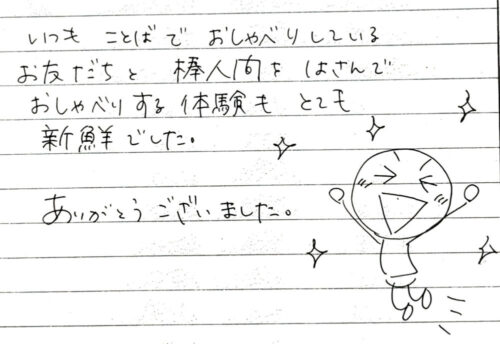 いつも ことばで おしゃべりしている
お友だちと 棒人間を はさんで
おしゃべりする 体験も とても
新鮮でした。
ありがとうございました。